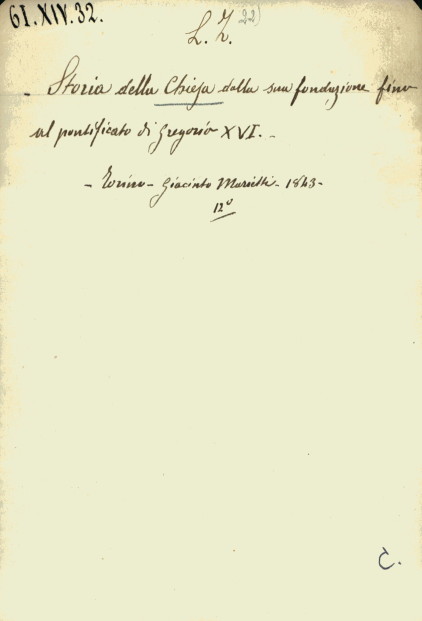 61.XIV.32.
L. Z. 22)
- Storia della Chiesa dalla sua fondazione fino
al pontificato di Gregorio XVI. -
- Torino - Giacinto Marietti - 1843 -
12º
C.